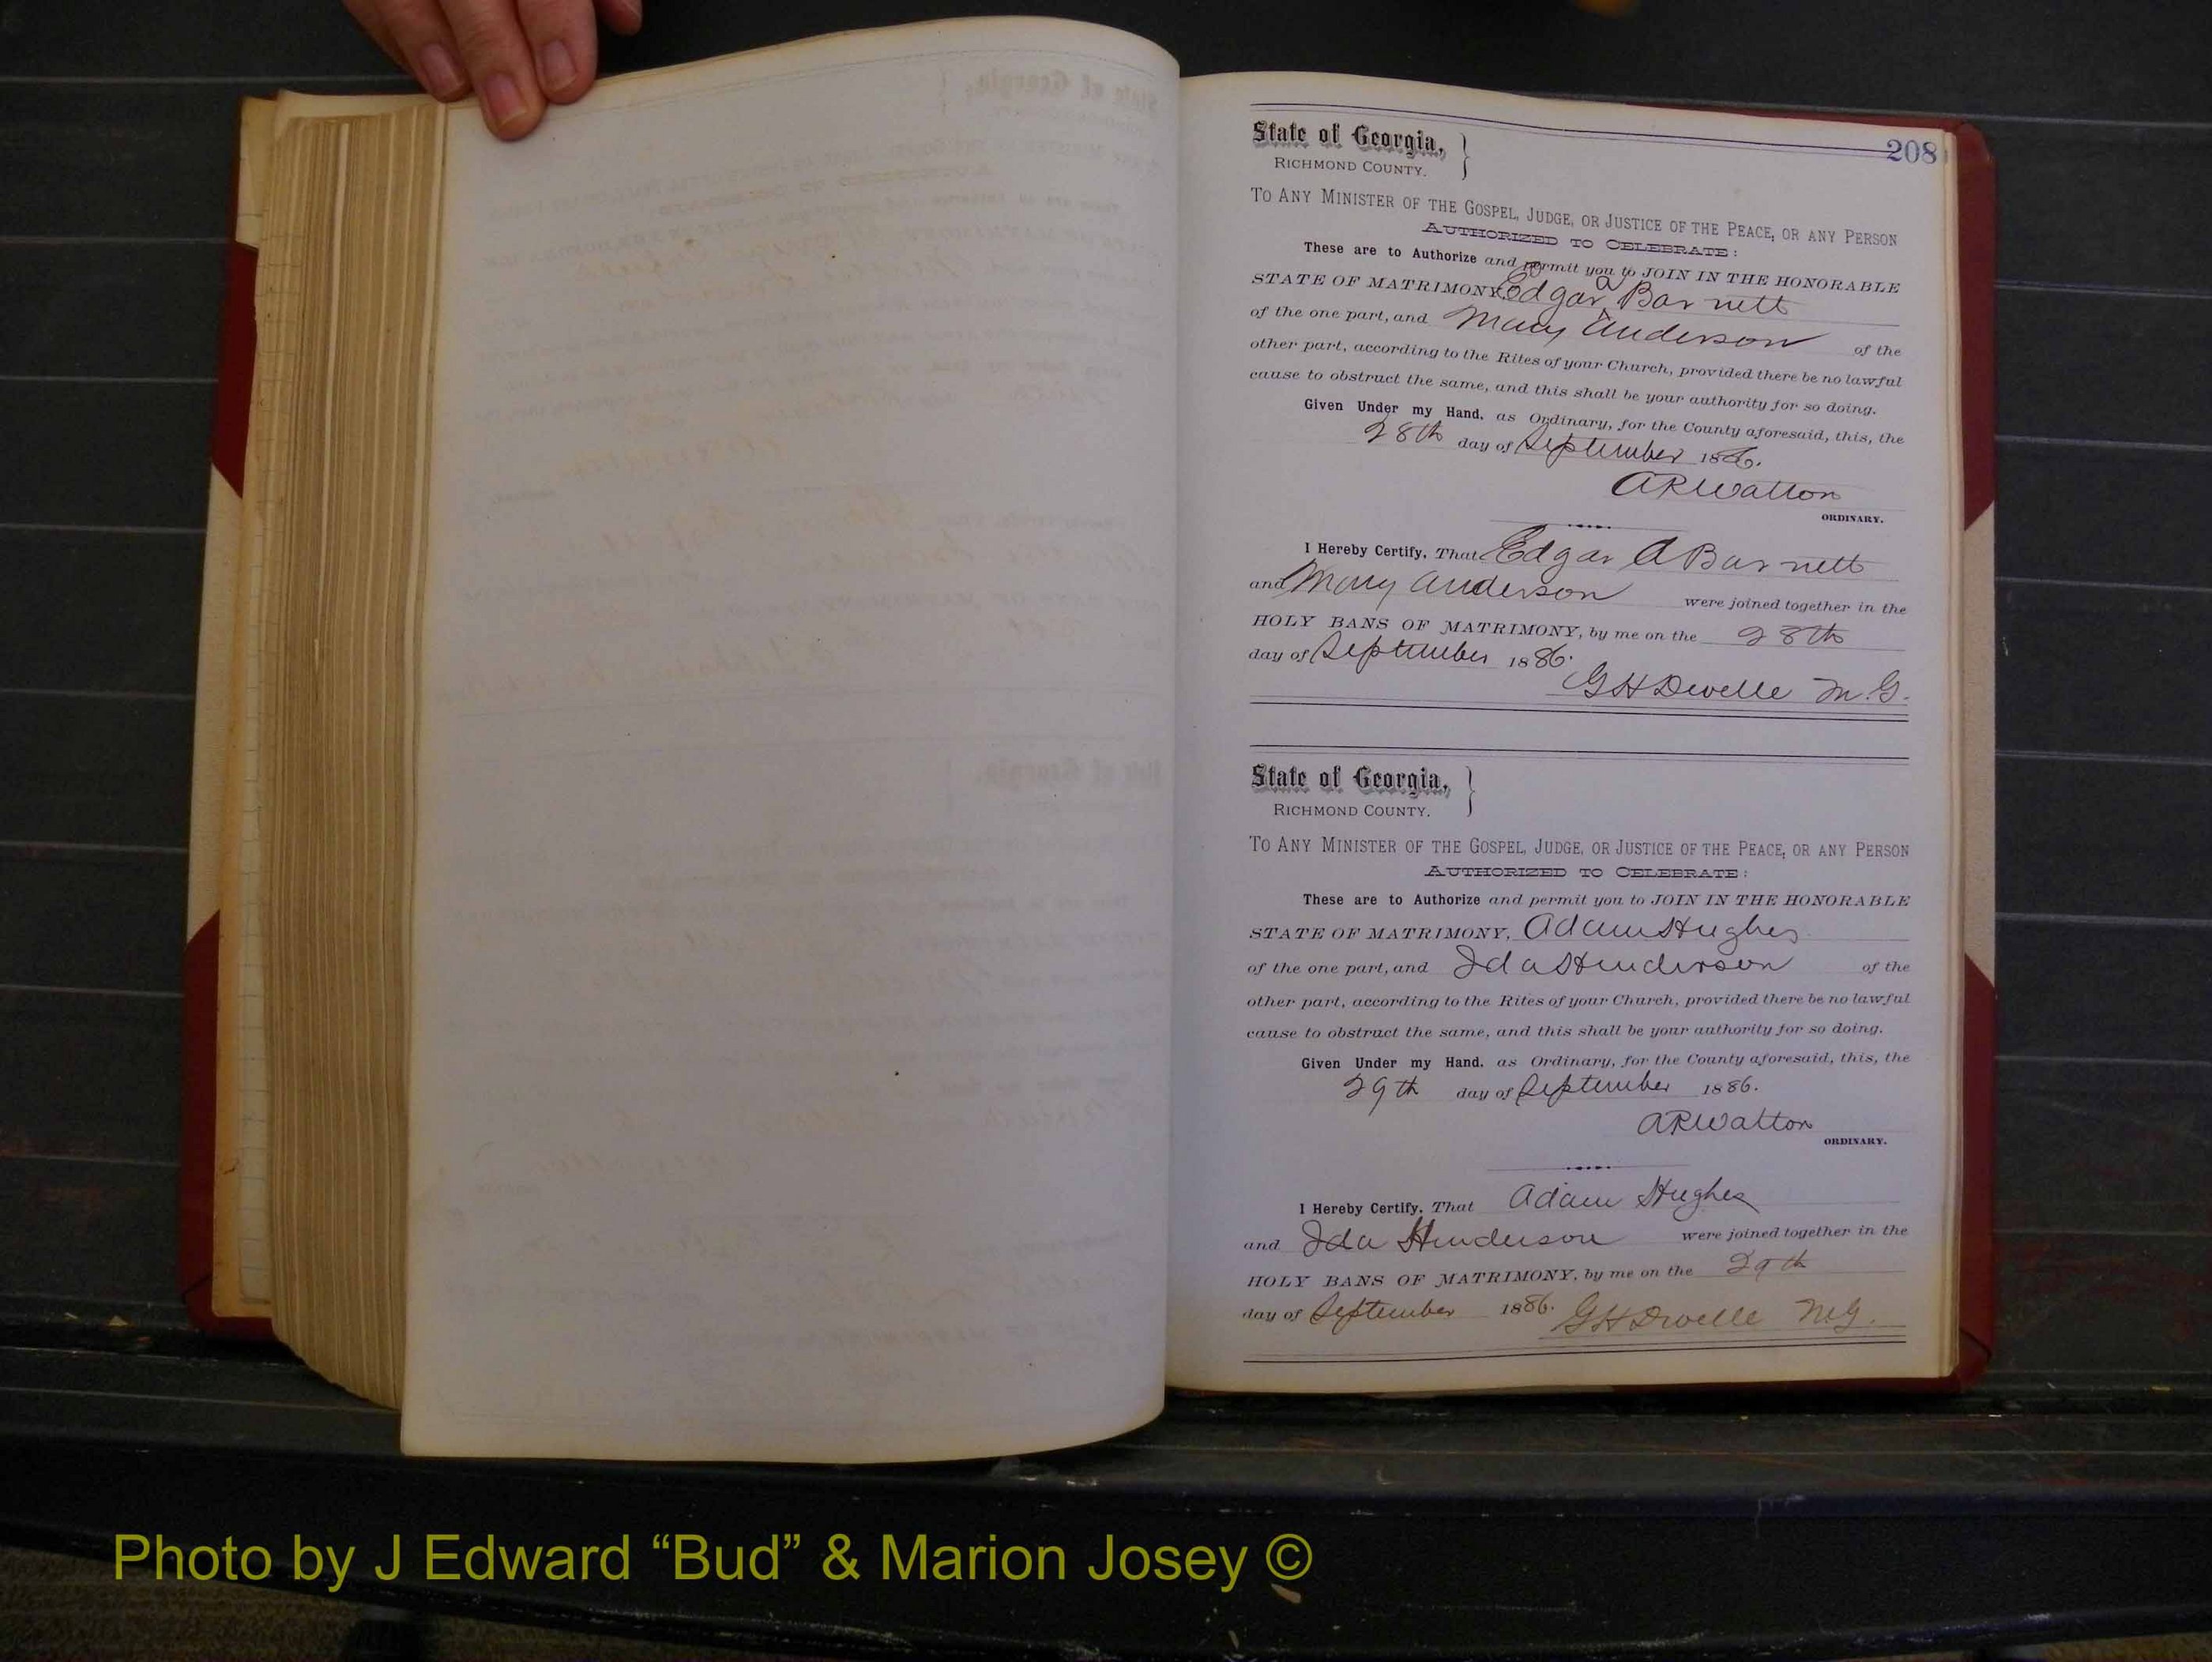 208
State of Georgia,
RICHMOND COUNTY.
TO ANY MINISTER OF THE GOSPEL, JUDGE, OR JUSTICE OF THE PEACE, OR ANY PERSON
AUTHORIZED TO CELEBRATE:
These are to Authorize and permit you to JOIN IN THE HONORABLE
STATE OF MATRIMONY, Edgar A Barnett
of the one part, and Mary Anderson of the
other part, according to the Rites of your Church, provided there be no lawful
cause to obstruct the same, and this shall be your authority for so doing.
Given Under my Hand, as Ordinary, for the County aforesaid, this, the
28th day of September 1886.
A R Walton
ORDINARY.
I Hereby Certify, That Edgar A Barnett
and Mary Anderson were joined together in the
HOLY BANS OF MATRIMONY, by me on the 28th
day of September 1886.
G H Dwelle M.G.
State of Georgia,
RICHMOND COUNTY.
TO ANY MINISTER OF THE GOSPEL, JUDGE, OR JUSTICE OF THE PEACE, OR ANY PERSON
AUTHORIZED TO CELEBRATE:
These are to Authorize and permit you to JOIN IN THE HONORABLE
STATE OF MATRIMONY, Adam Hughes
of the one part, and Ida Henderson of the
other part, according to the Rites of your Church, provided there be no lawful
cause to obstruct the same, and this shall be your authority for so doing.
Given Under my Hand, as Ordinary, for the County aforesaid, this, the
29th day of September 1886.
A R Walton
ORDINARY.
I Hereby Certify, That Adam Hughes
and Ida Henderson were joined together in the
HOLY BANS OF MATRIMONY, by me on the 29th
day of September 1886. G H Dwelle M.G.
Photo by J Edward “Bud” & Marion Josey ©